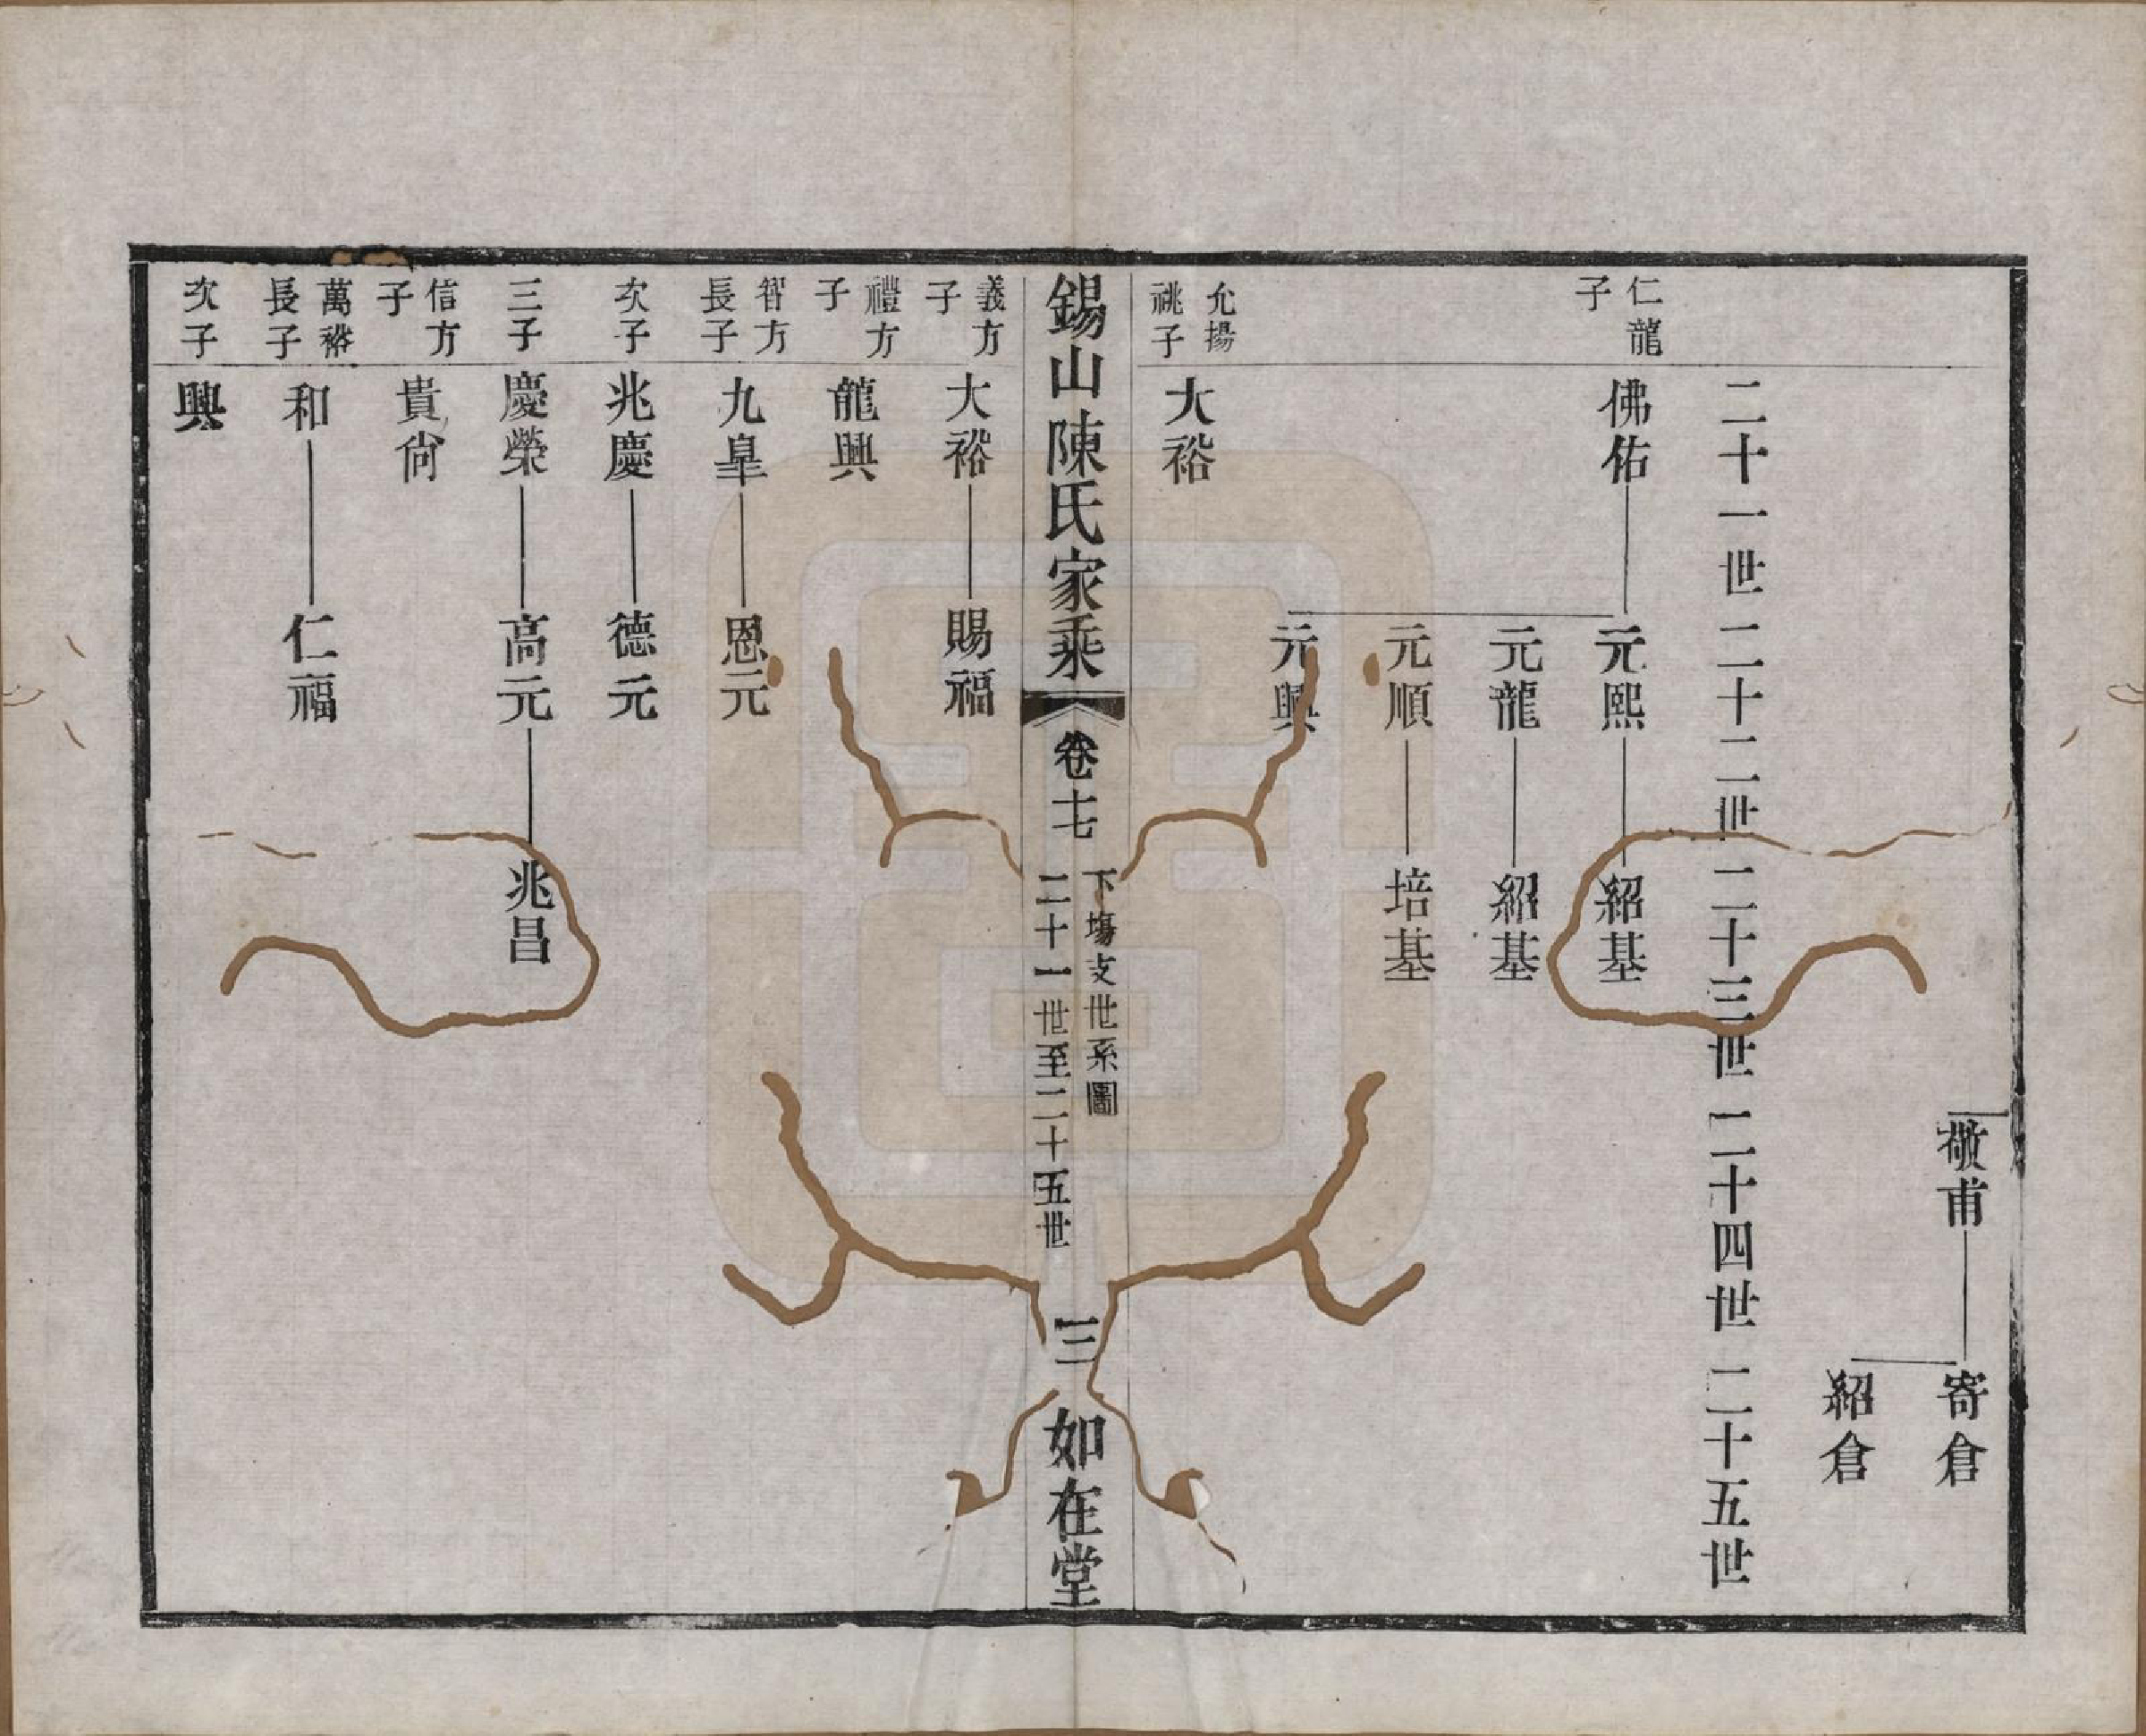 敬甫
寄倉
紹倉
二十一世 二十二世 二十三世 二十四世 二十五世
仁龍
子
佛佑
元熙
紹基
元龍
紹基
元順
培基
元興
允揚
祧子
大裕
錫山陳氏家乘
卷七
下塲支世系圖
二十一世至二十五世
三
如在堂
義方
子
大裕
賜福
禮方
子
龍興
智方
長子
九皐
恩元
次子
兆慶
德元
三子
慶榮
高元
兆昌
信方
子
貴尙
萬裕
長子
和
仁福
次子
興